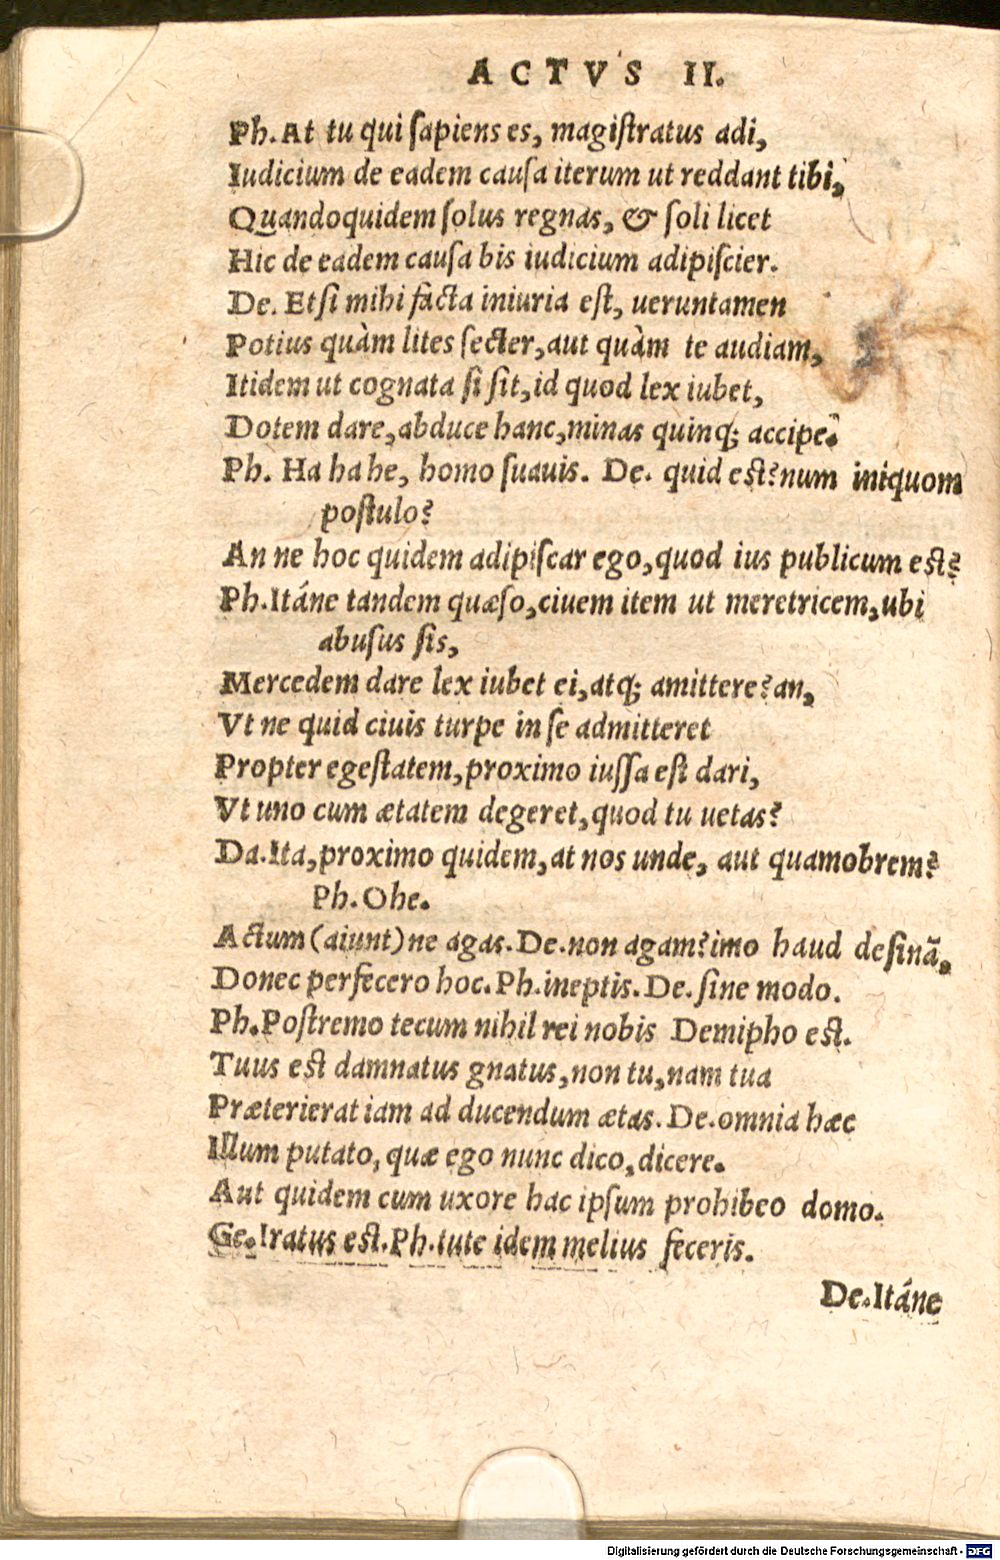 ACTVS II.
Ph. At tu qui sapiens es, magistratus adi,
Iudicium de eadem causa iterum ut reddant tibi,
Quandoquidem solus regnas, & soli licet
Hic de eadem causa bis iudicium adipiscier.
De. Etsi mihi facta iniuria est, ueruntamen
Potius quàm lites secter, aut quàm te audiam,
Itidem ut cognata si sit, id quod lex iubet,
Dotem dare, abduce hanc, minas quinq; accipe.
Ph. Ha ha he, homo suauis. De. quid est? num iniquom
postulo?
An ne hoc quidem adipiscar ego, quod ius publicum est?
Ph. Itáne tandem quæso, ciuem item ut meretricem, ubi
abusus sis,
Mercedem dare lex iubet ei, atq; amittere? an,
Vt ne quid ciuis turpe in se admitteret
Propter egestatem, proximo iussa est dari,
Vt uno cum ætatem degeret, quod tu uetas?
Da. Ita, proximo quidem, at nos unde, aut quamobrem?
Ph. Ohe.
Actum (aiunt) ne agas. De. non agam? imo haud desinã,
Donec perfecero hoc. Ph. ineptis. De. sine modo.
Ph. Postremo tecum nihil rei nobis Demipho est.
Tuus est damnatus gnatus, non tu, nam tua
Præterierat iam ad ducendum ætas. De. omnia hæc
Illum putato, quæ ego nunc dico, dicere.
Aut quidem cum uxore hac ipsum prohibeo domo.
Ge. Iratus est. Ph. tute idem melius feceris.
De. Itáne
Digitalisierung gefördert durch die Deutsche Forschungsgemeinschaft - DFG